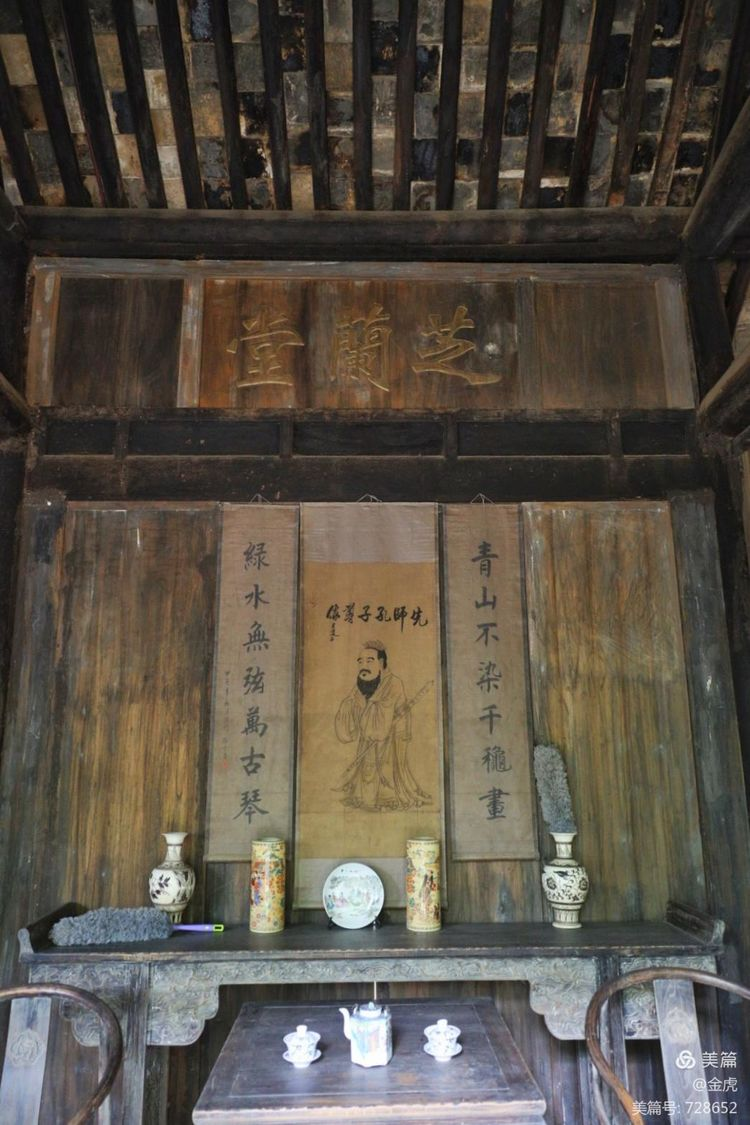 芝蘭堂
先師孔子尊像
青山不染千穐畫
綠水無弦萬古琴
美篇
@金虎
美篇号: 728652